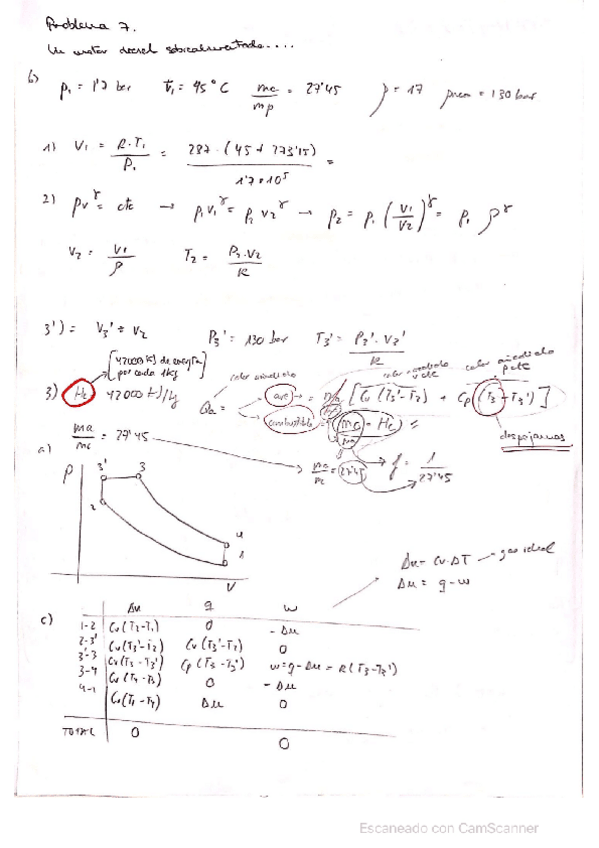 Problema 7.
Un motor diesel sobrealimentado....
b) p₁ = 1'7 bar t₁ = 45°C ma/mp = 27'45 ρ = 17 pmax = 130 bar
1) V₁ = R·T₁/P₁ = 287·(45+273'15)/1'7*10⁵ =
2) pv^γ = cte → p₁v₁^γ = p₂v₂^γ → p₂ = p₁(V₁/V₂)^γ = p₁ρ^γ
V₂ = V₁/ρ T₂ = P₂·V₂/R
3') = V₃' = V₂ P₃' = 130 bar T₃' = P₃'·V₃'/R
[42000 kJ de energía por cada 1kg]
calor añadido calor añadido vcte calor añadido pcte
3) Hc 42000 kJ/kg Qa = aire = ma [Cv(T₃'-T₂) + Cp(T₃-T₃')]
combustible = mc·Hc =
despejamos
ma/mc = 27'45
ma/mc = 27'45 → f = 1/27'45
a)
P
3' 3
2
4
1
V
Δu = Cv·ΔT — gas ideal
Δu = q-w
c)
Δu q w
1-2 Cv(T₂-T₁) 0 -Δu
2-3' Cv(T₃'-T₂) Cv(T₃'-T₂) 0
3'-3 Cv(T₃-T₃') Cp(T₃-T₃') w=q-Δu = R(T₃-T₃')
3-4 Cv(T₄-T₃) 0 -Δu
4-1 Cv(T₁-T₄) Δu 0
TOTAL 0 0
Escaneado con CamScanner